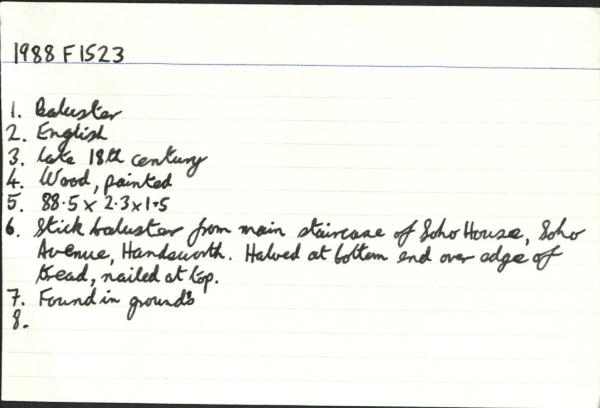 1988 F1523
1. Baluster
2. English
3. Late 18th century
4. Wood, painted
5. 88.5 x 2.3 x 1.5
6. Stick baluster from main staircase of Soho House, Soho
Avenue, Handsworth. Halved at bottom end over edge of
tread, nailed at top.
7. Found in grounds
8.